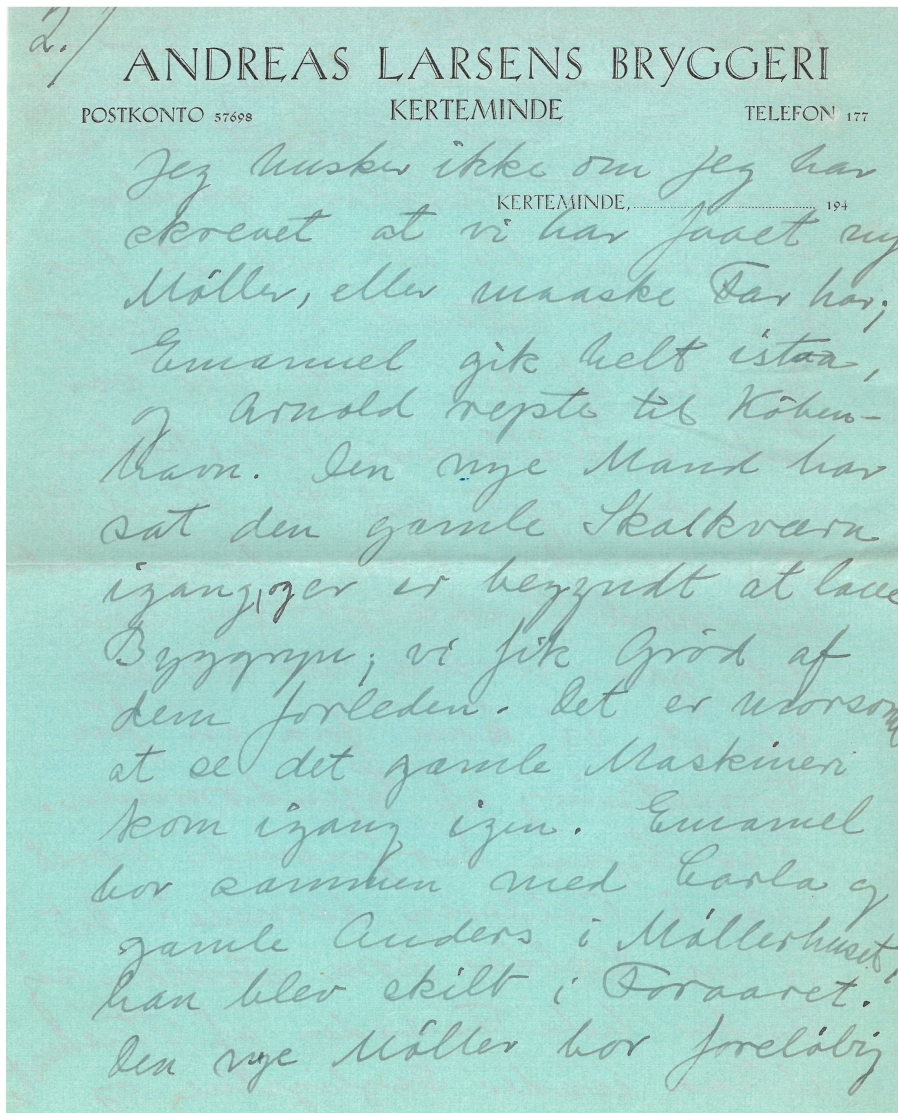 2./
ANDREAS LARSENS BRYGGERI
POSTKONTO 57698 KERTEMINDE TELEFON 177
Jeg husker ikke om jeg har
KERTEMINDE, 194
skrevet at vi har faaet ny
Möller, eller maaske Far har;
Emanuel gik helt istaa,
og Arnold rejste til Köben-
havn. Den nye Mand har
sat den gamle Skalkværn
igang, og er begyndt at lave
Byggryn; vi fik Gröd af
dem forleden. Det er morsomt
at se det gamle Maskineri
kom igang igen. Emanuel
bor sammen med Carla og
gamle Anders i Möllerhuset,
han blev skilt i Foraaret.
Den nye Möller bor foreløbig